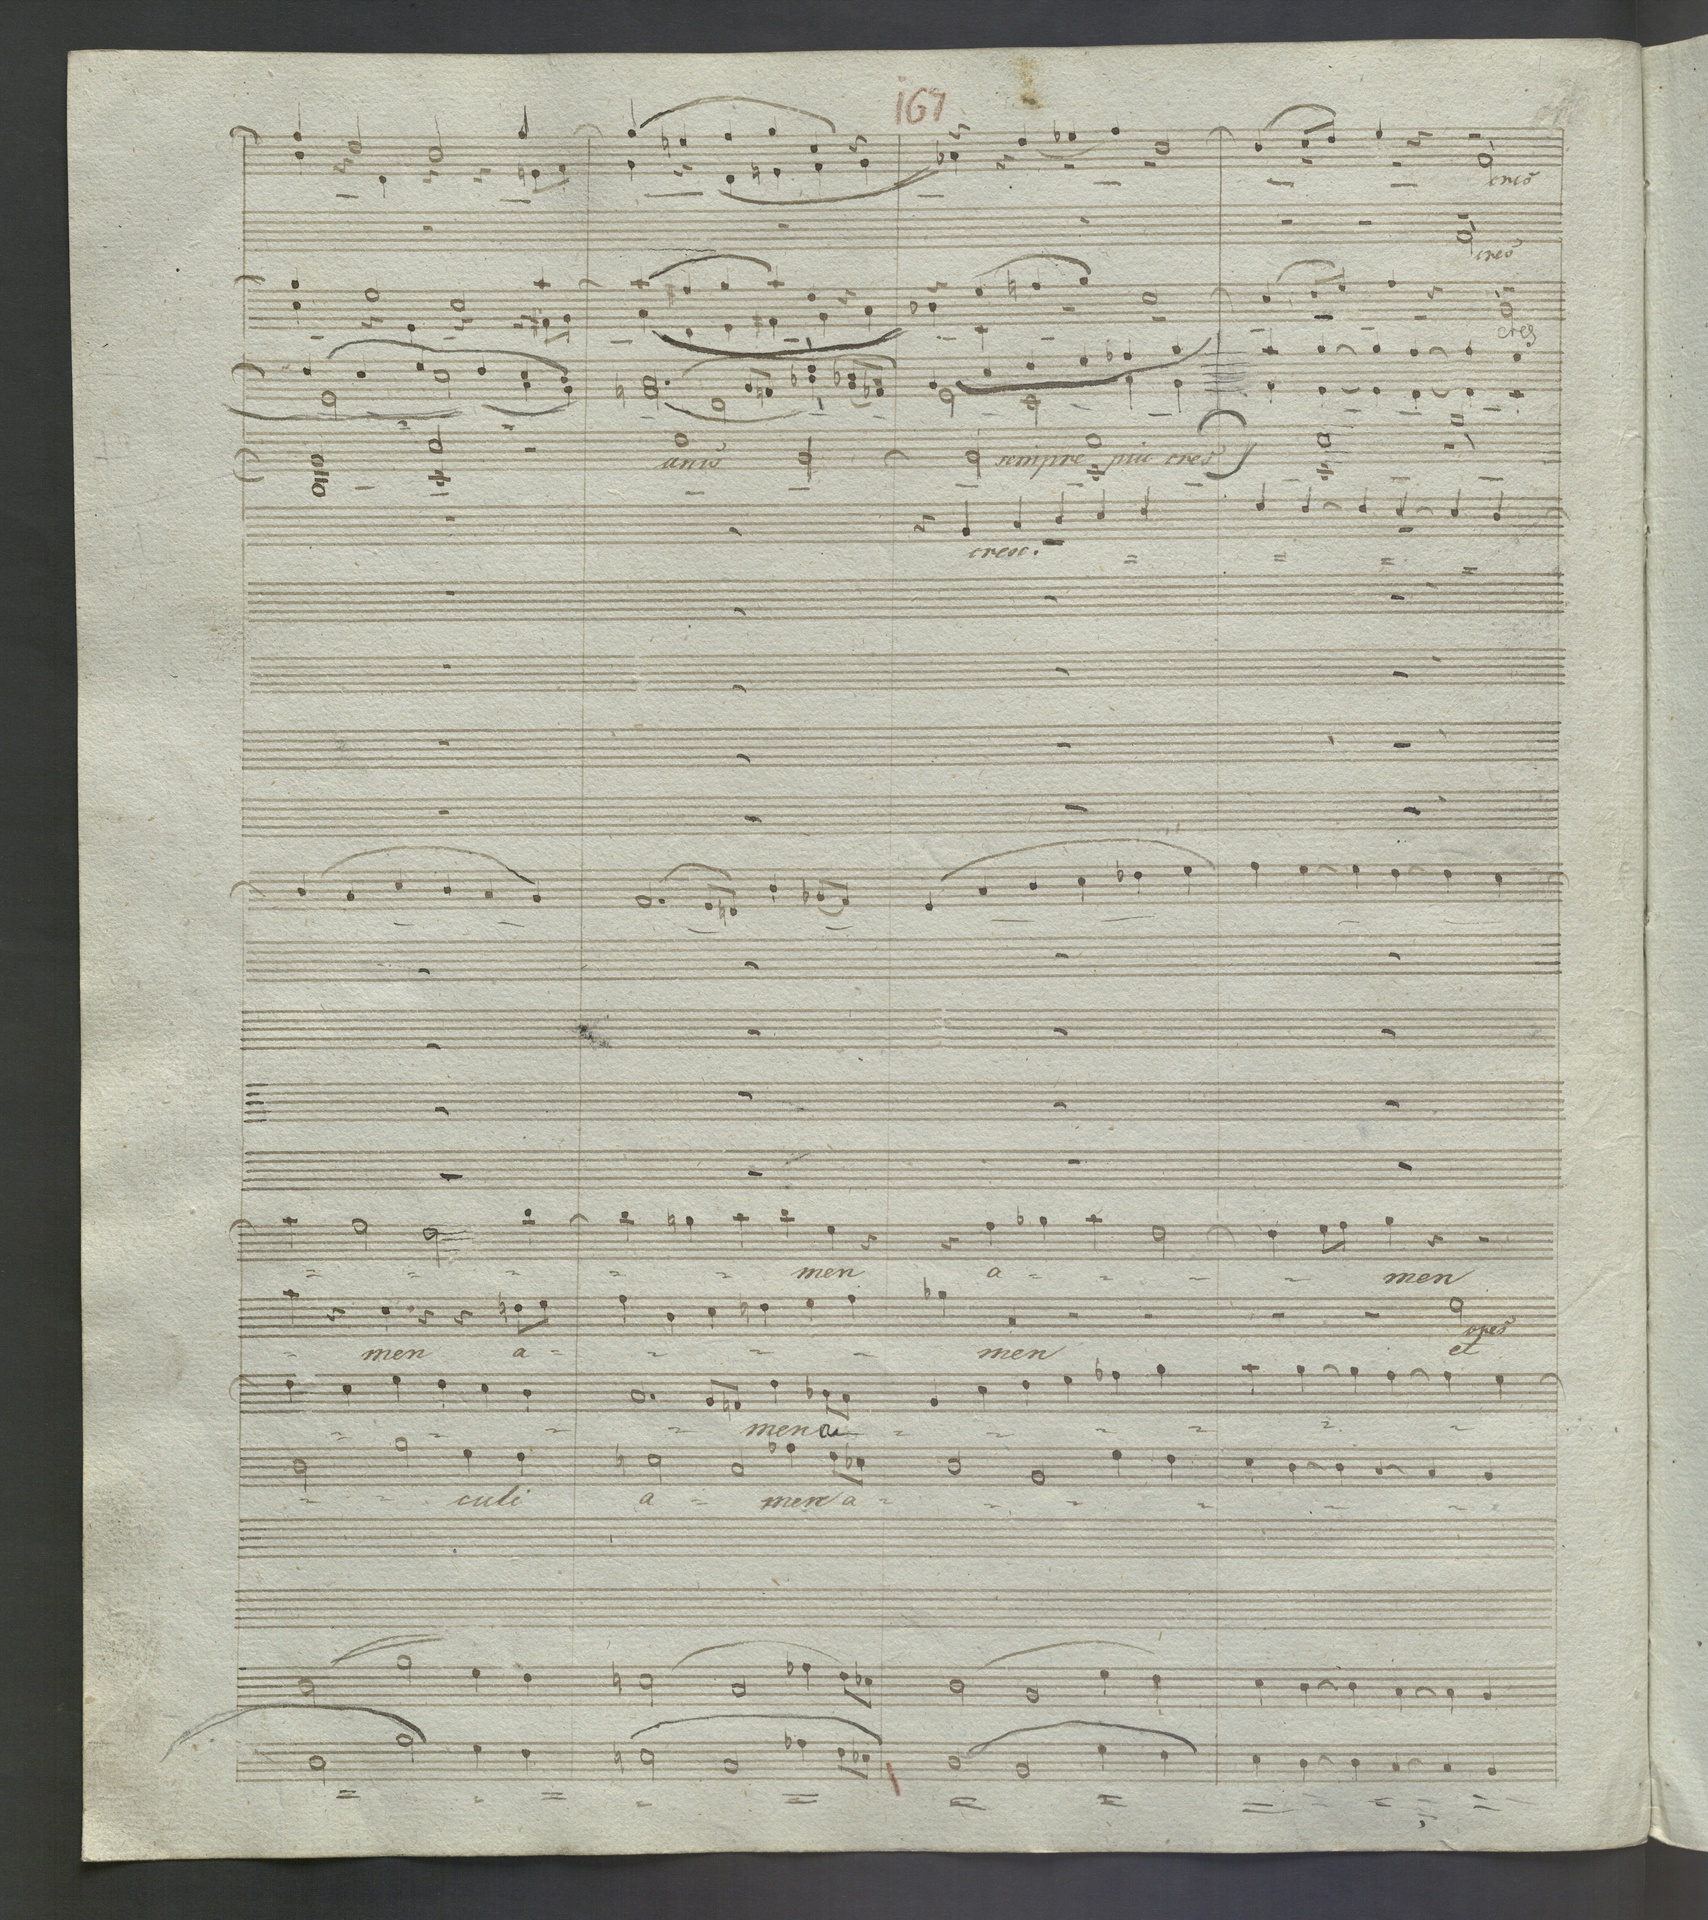 167
cres
cres
cres
unis sempre piu cres
cresc.
men a men
men a men cres
et
men a
culi a men a